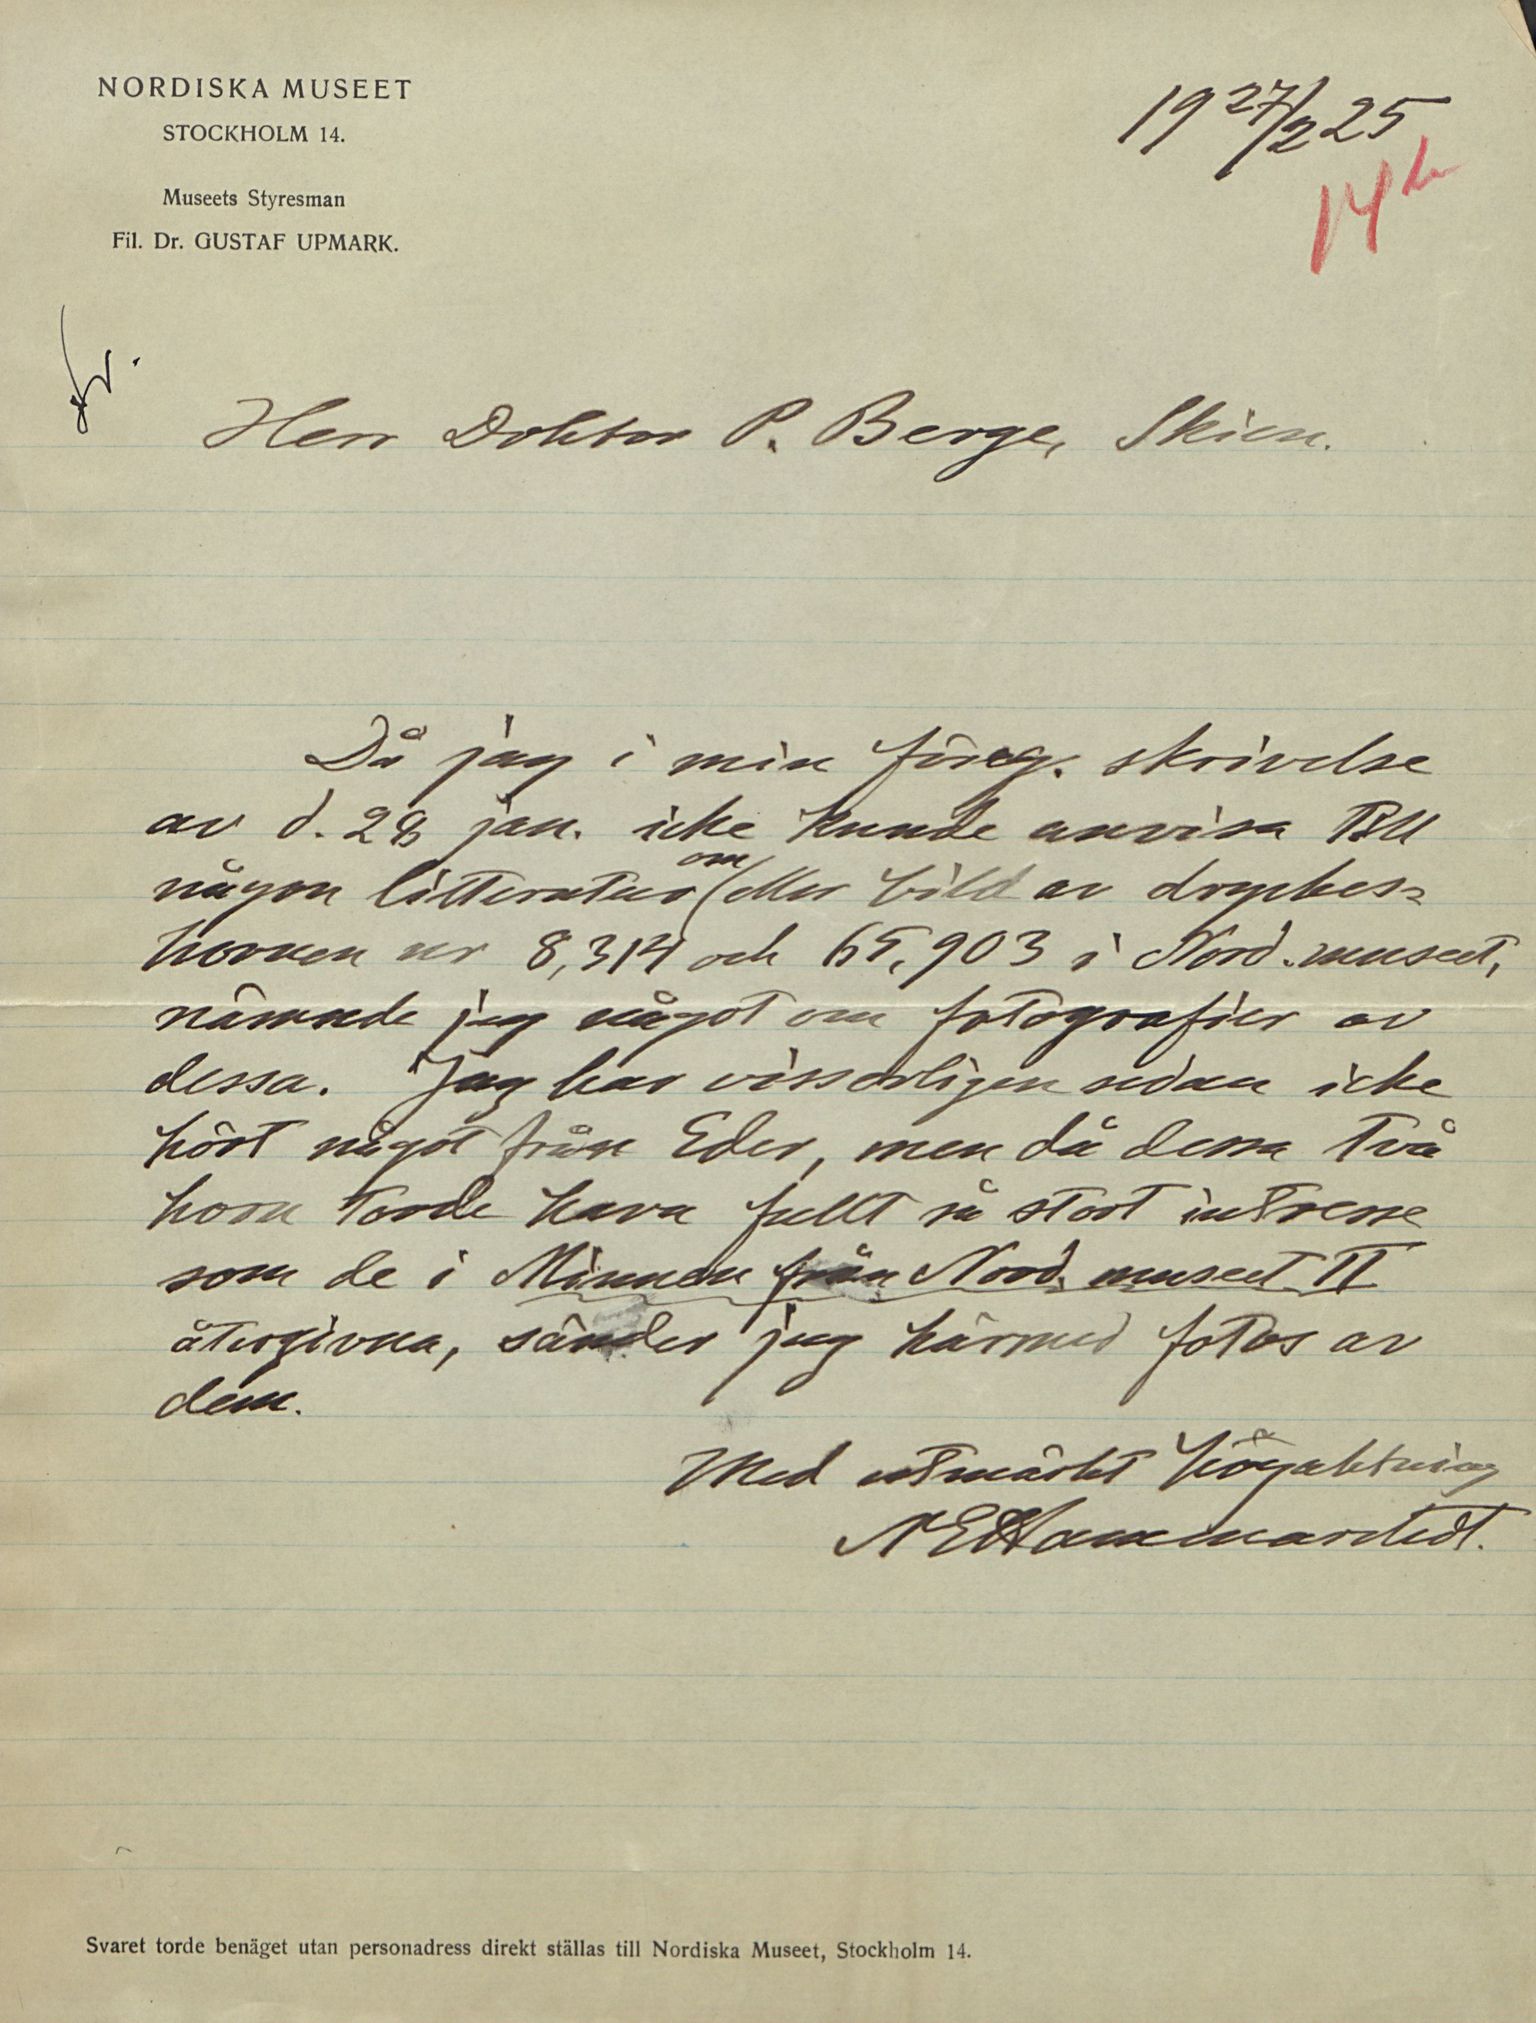 NORDISKA MUSEET
STOCKHOLM 14.
Museets Styresman
Fil. Dr. GUSTAF UPMARK.
19 27/2 25
14
Herr Doktor P. Berge, Skien.
Då jag i min föreg. skrivelse
av d. 28 jan. icke kunde anvisa
någon litteratur om eller bild av dryckes-
hornen nr 8,314 och 65,903 i Nord. museet,
nämnde jag något om fotografier av
dessa. Jag har visserligen sedan icke
hört något från Eder, men då dessa två
horn torde hava fullt så stort intresse
som de i Minnen från Nord. museet II
återgivna, sänder jag härmed fotos av
dem.
Med utmärkt högaktning
N E Hammarstedt.
Svaret torde benäget utan personadress direkt ställas till Nordiska Museet, Stockholm 14.